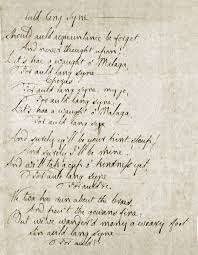 Auld lang syne
Should auld acquaintance be forgot
And never thought upon!
Let's hae a waught o' Malaga,
For auld lang syne
Chorus
For auld lang syne, my jo,
For auld lang syne
Let's hae a waught o' Malaga,
For auld lang syne
And surely ye'll be your pint stoup,
And surely I'll be mine
And we'll tak a cup o' kindness yet
For auld &c
We twa hae run about the braes,
And pou't the gowans fine
But we've wander'd mony a weary foot
Sin auld lang syne
For auld &c